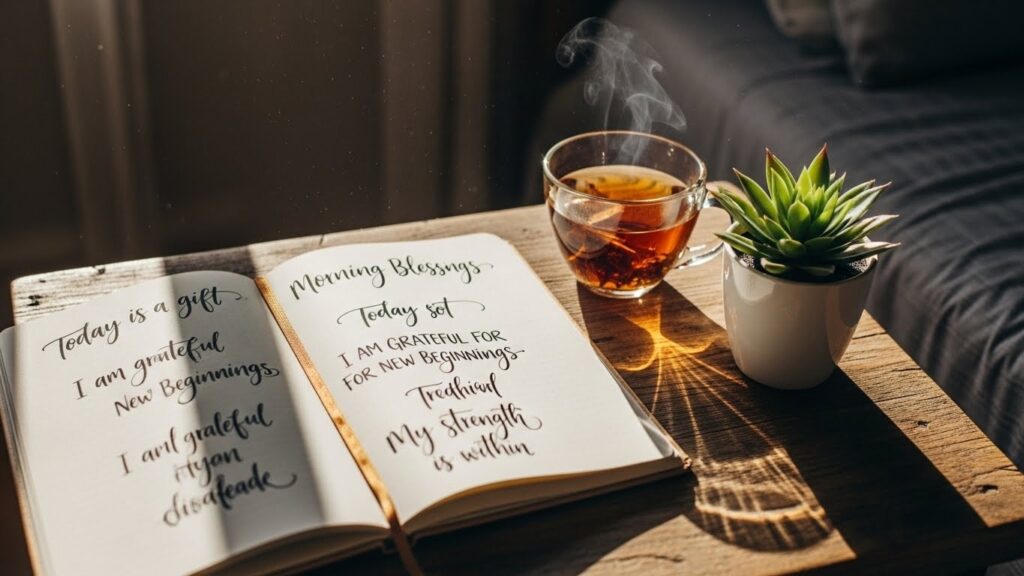 Today is a gift
I am grateful
New Beginnings
I am grateful
Morning Blessngs
Today sot
I AM GRATEFUL FOR
FOR NEW BEGINNINGS
My strength
is within